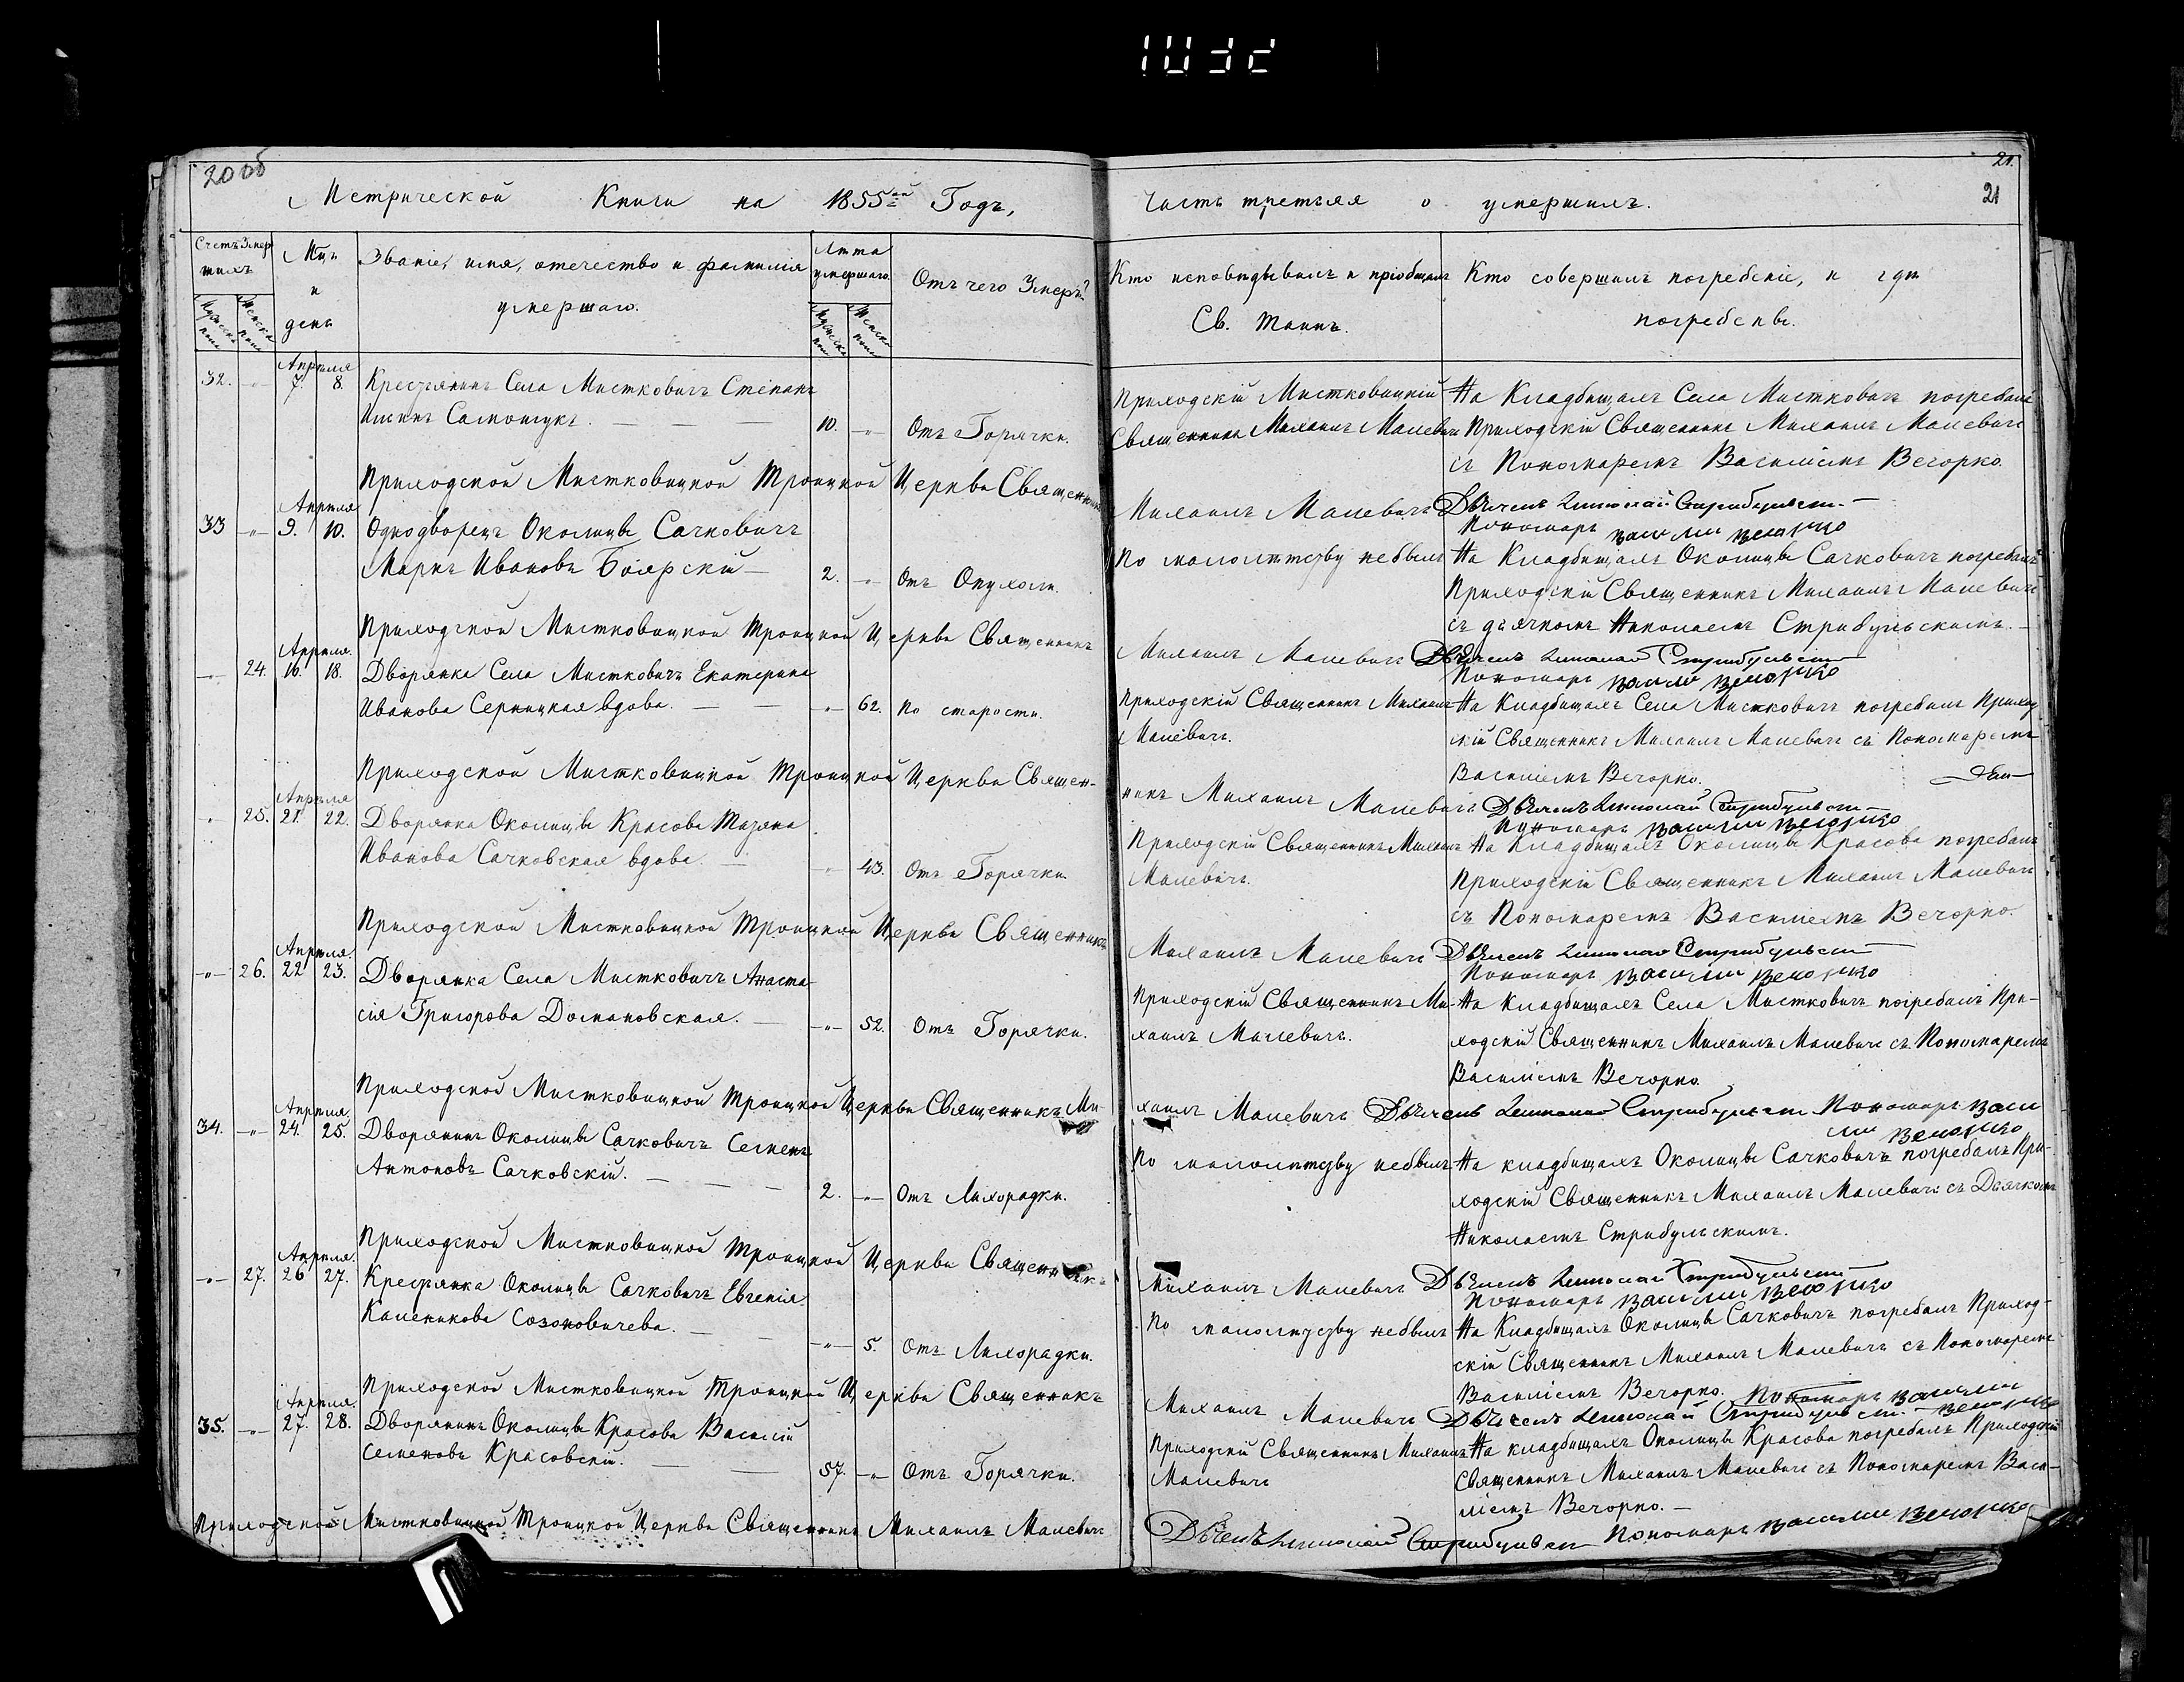 20 об
21.
21
Метрической Книги на 1855ой Годъ,
Часть третья о умершихъ.
Счетъ Умершихъ
Мужеска пола
Женска пола
Мць и день
Званіе, имя, отечество и фамилія умершаго.
Лѣта умершаго.
Мужеска пола
Женска пола
Отъ чего Умеръ?
Кто исповѣдывалъ и пріобщалъ
Св. Таинъ.
Кто совершилъ погребеніе, и гдѣ
погребены.
32. -"- Апрѣля 7. 8. Крестьянинъ Села Мистковичъ Степанъ
10. -"- Отъ Горячки.
Приходскій Мистковицкій
Священникъ Михаилъ Малевичъ
На Кладбищахъ Села Мистковичъ погребалъ
Приходскій Священникъ Михаилъ Малевичъ
съ Пономаремъ Василіемъ Вечорко.
Приходской Мистковицкой Троицкой Церкви Священникъ Михаилъ Малевичъ Дьячекъ Николай Стрибульскій
Пономарь Василий Вечорко
33 -"- Апрѣля 9. 10. Однодворецъ Околицы Сачковичъ
Маркъ Ивановъ Боярскій 2. -"- Отъ Опухоли.
По малолѣтству небылъ
На Кладбищахъ Околицы Сачковичъ погребалъ
Приходскій Священникъ Михаилъ Малевичъ
съ дьячкомъ Николаемъ Стрибульскимъ.
Приходской Мистковицкой Троицкой Церкви Священникъ Михаилъ Малевичъ Дьячекъ Николай Стрибульскій
Пономарь Василий Вечорко
-"- 24. Апрѣля. 16. 18. Дворянка Села Мистковичъ Екатерина
Иванова Серницкая вдова. -"- 62. По старости.
Приходскій Священникъ Михаилъ
Малевичъ.
На Кладбищахъ Села Мистковичъ погребалъ Приход
скій Священникъ Михаилъ Малевичъ съ Пономаремъ
Василіемъ Вечорко.
Приходской Мистковицкой Троицкой Церкви Священ-
никъ Михаилъ Малевичъ Дьячекъ Николай Стрибульскій
Пономарь Василий Вечорко
-"- 25. Апрѣля 21. 22. Дворянка Околицы Красова Татяна
Иванова Сачковская вдова. -"- 43. Отъ Горячки
Приходскій Священникъ Михаилъ
Малевичъ.
На Кладбищахъ Околицы Красова погребалъ
Приходскій Священникъ Михаилъ Малевичъ
съ Пономаремъ Василіемъ Вечорко.
Приходской Мистковицкой Троицкой Церкви Священникъ Михаилъ Малевичъ Дьячекъ Николай Стрибульскій
Пономарь Василий Вечорко
-"- 26. Апрѣля. 22 23. Дворянка Села Мистковичъ Анаста-
сія Григорова Домановская. -"- 52. Отъ Горячки.
Приходскій Священникъ Ми-
хаилъ Малевичъ.
На Кладбищахъ Села Мистковичъ погребалъ При-
ходскій Священникъ Михаилъ Малевичъ съ Пономаремъ
Василіемъ Вечорко.
Приходской Мистковицкой Троицкой Церкви Священникъ Ми-
хаилъ Малевичъ Дьячекъ Николай Стрибульскій Пономарь Васи
лий Вечорко
34. -"- Апрѣля. 24. 25. Дворянинъ Околицы Сачковичъ Семенъ
Антоновъ Сачковскій. 2. -"- Отъ Лихорадки.
По малолѣтству небылъ
На кладбищахъ Околицы Сачковичъ погребалъ При-
ходскій Священникъ Михаилъ Малевичъ съ Дьячкомъ
Николаемъ Стрибульскимъ.
Приходской Мистковицкой Троицкой Церкви Священникъ
Михаилъ Малевичъ Дьячекъ Николай Стрибульскій
Пономарь Василий Вечорко
-"- 27. Апрѣля. 26 27. Крестьянка Околицы Сачковичъ Евгенія
Каленикова Созоновичева. -"- 5. Отъ Лихорадки.
По малолѣтству небыла
На Кладбищахъ Околицы Сачковичъ погребалъ Приход-
скій Священникъ Михаилъ Малевичъ съ Пономаремъ
Василіемъ Вечорко. Пономарь Василий
Приходской Мистковицкой Троицкой Церкви Священникъ
Михаилъ Малевичъ Дьячекъ Николай Стрибульскій Вечорко
35. -"- Апрѣля. 27. 28. Дворянинъ Околицы Красова Василій
Семеновъ Красовскій. 57. -"- Отъ Горячки.
Приходскій Священникъ Михаилъ
Малевичъ
На кладбищахъ Околицы Красова погребалъ Приходскій
Священникъ Михаилъ Малевичъ съ Пономаремъ Васи-
ліемъ Вечорко.
Приходской Мистковицкой Троицкой Церкви Священникъ Михаилъ Малевичъ
Дьячекъ Николай Стрибульскій Пономарь Василий Вечорко